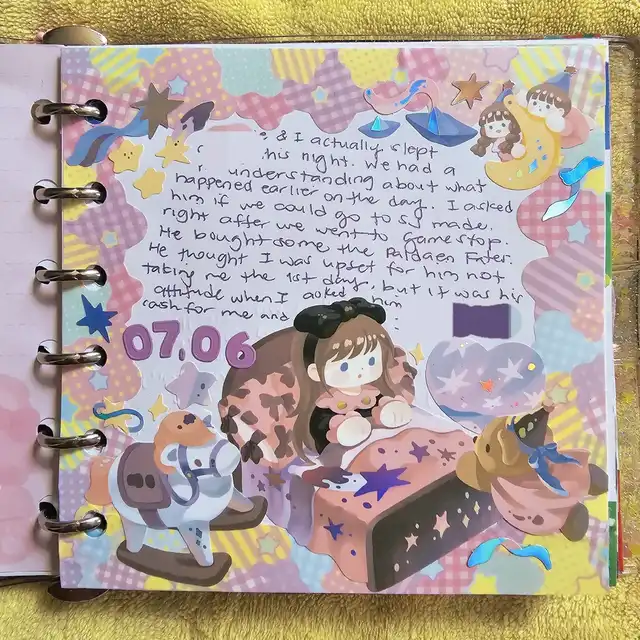 & I actually slept
his night. We had a
understanding about what
happened earlier on the day. I asked
him if we could go to SJ made,
right after we went to Gamestop.
He bought some the Paldaen Fates.
He thought I was upset for him not
taking me the 1st day, but it was his
attitude when I asked him
cash for me and
07.06